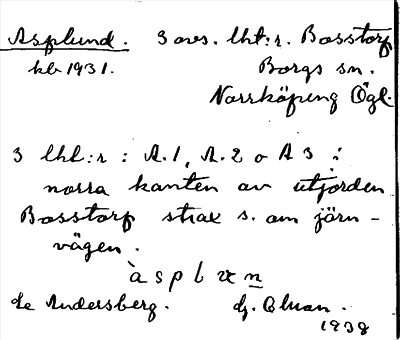 Asplund. 3 avs. lht:r. Basstorp
kb 1931. Borgs sn.
Norrköping Ögl.
3 lht:r : A.1, A.2 o A 3 i
norra kanten av utjorden
Basstorp strax s. om järn-
vägen.
àsplɯn
le Andersberg. dj. Olman.
1938